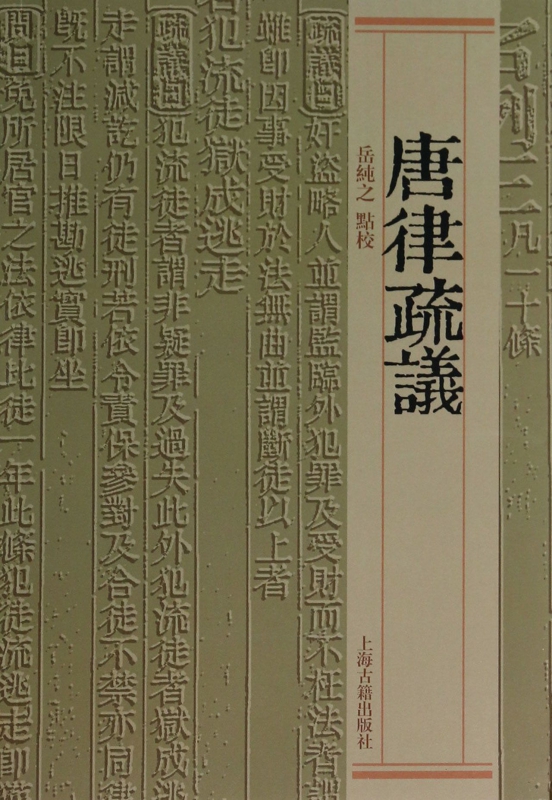 唐律疏議
岳純之 點校
上海古籍出版社
名例三凡一十條
疏議曰奸盜略人並謂監臨外犯罪及受財而不枉法者謂
雖即因事受財於法無曲並謂斷徒以上者
若犯流徒獄成逃走
疏議曰犯流徒者謂非疑罪及過失此外犯流徒者獄成逃
走謂減訖仍有徒刑若依令責保參對及合徒不禁亦同律
既不注限日推勘逃實即坐
問曰免所居官之法依律比徒一年此條犯徒流逃走即獲